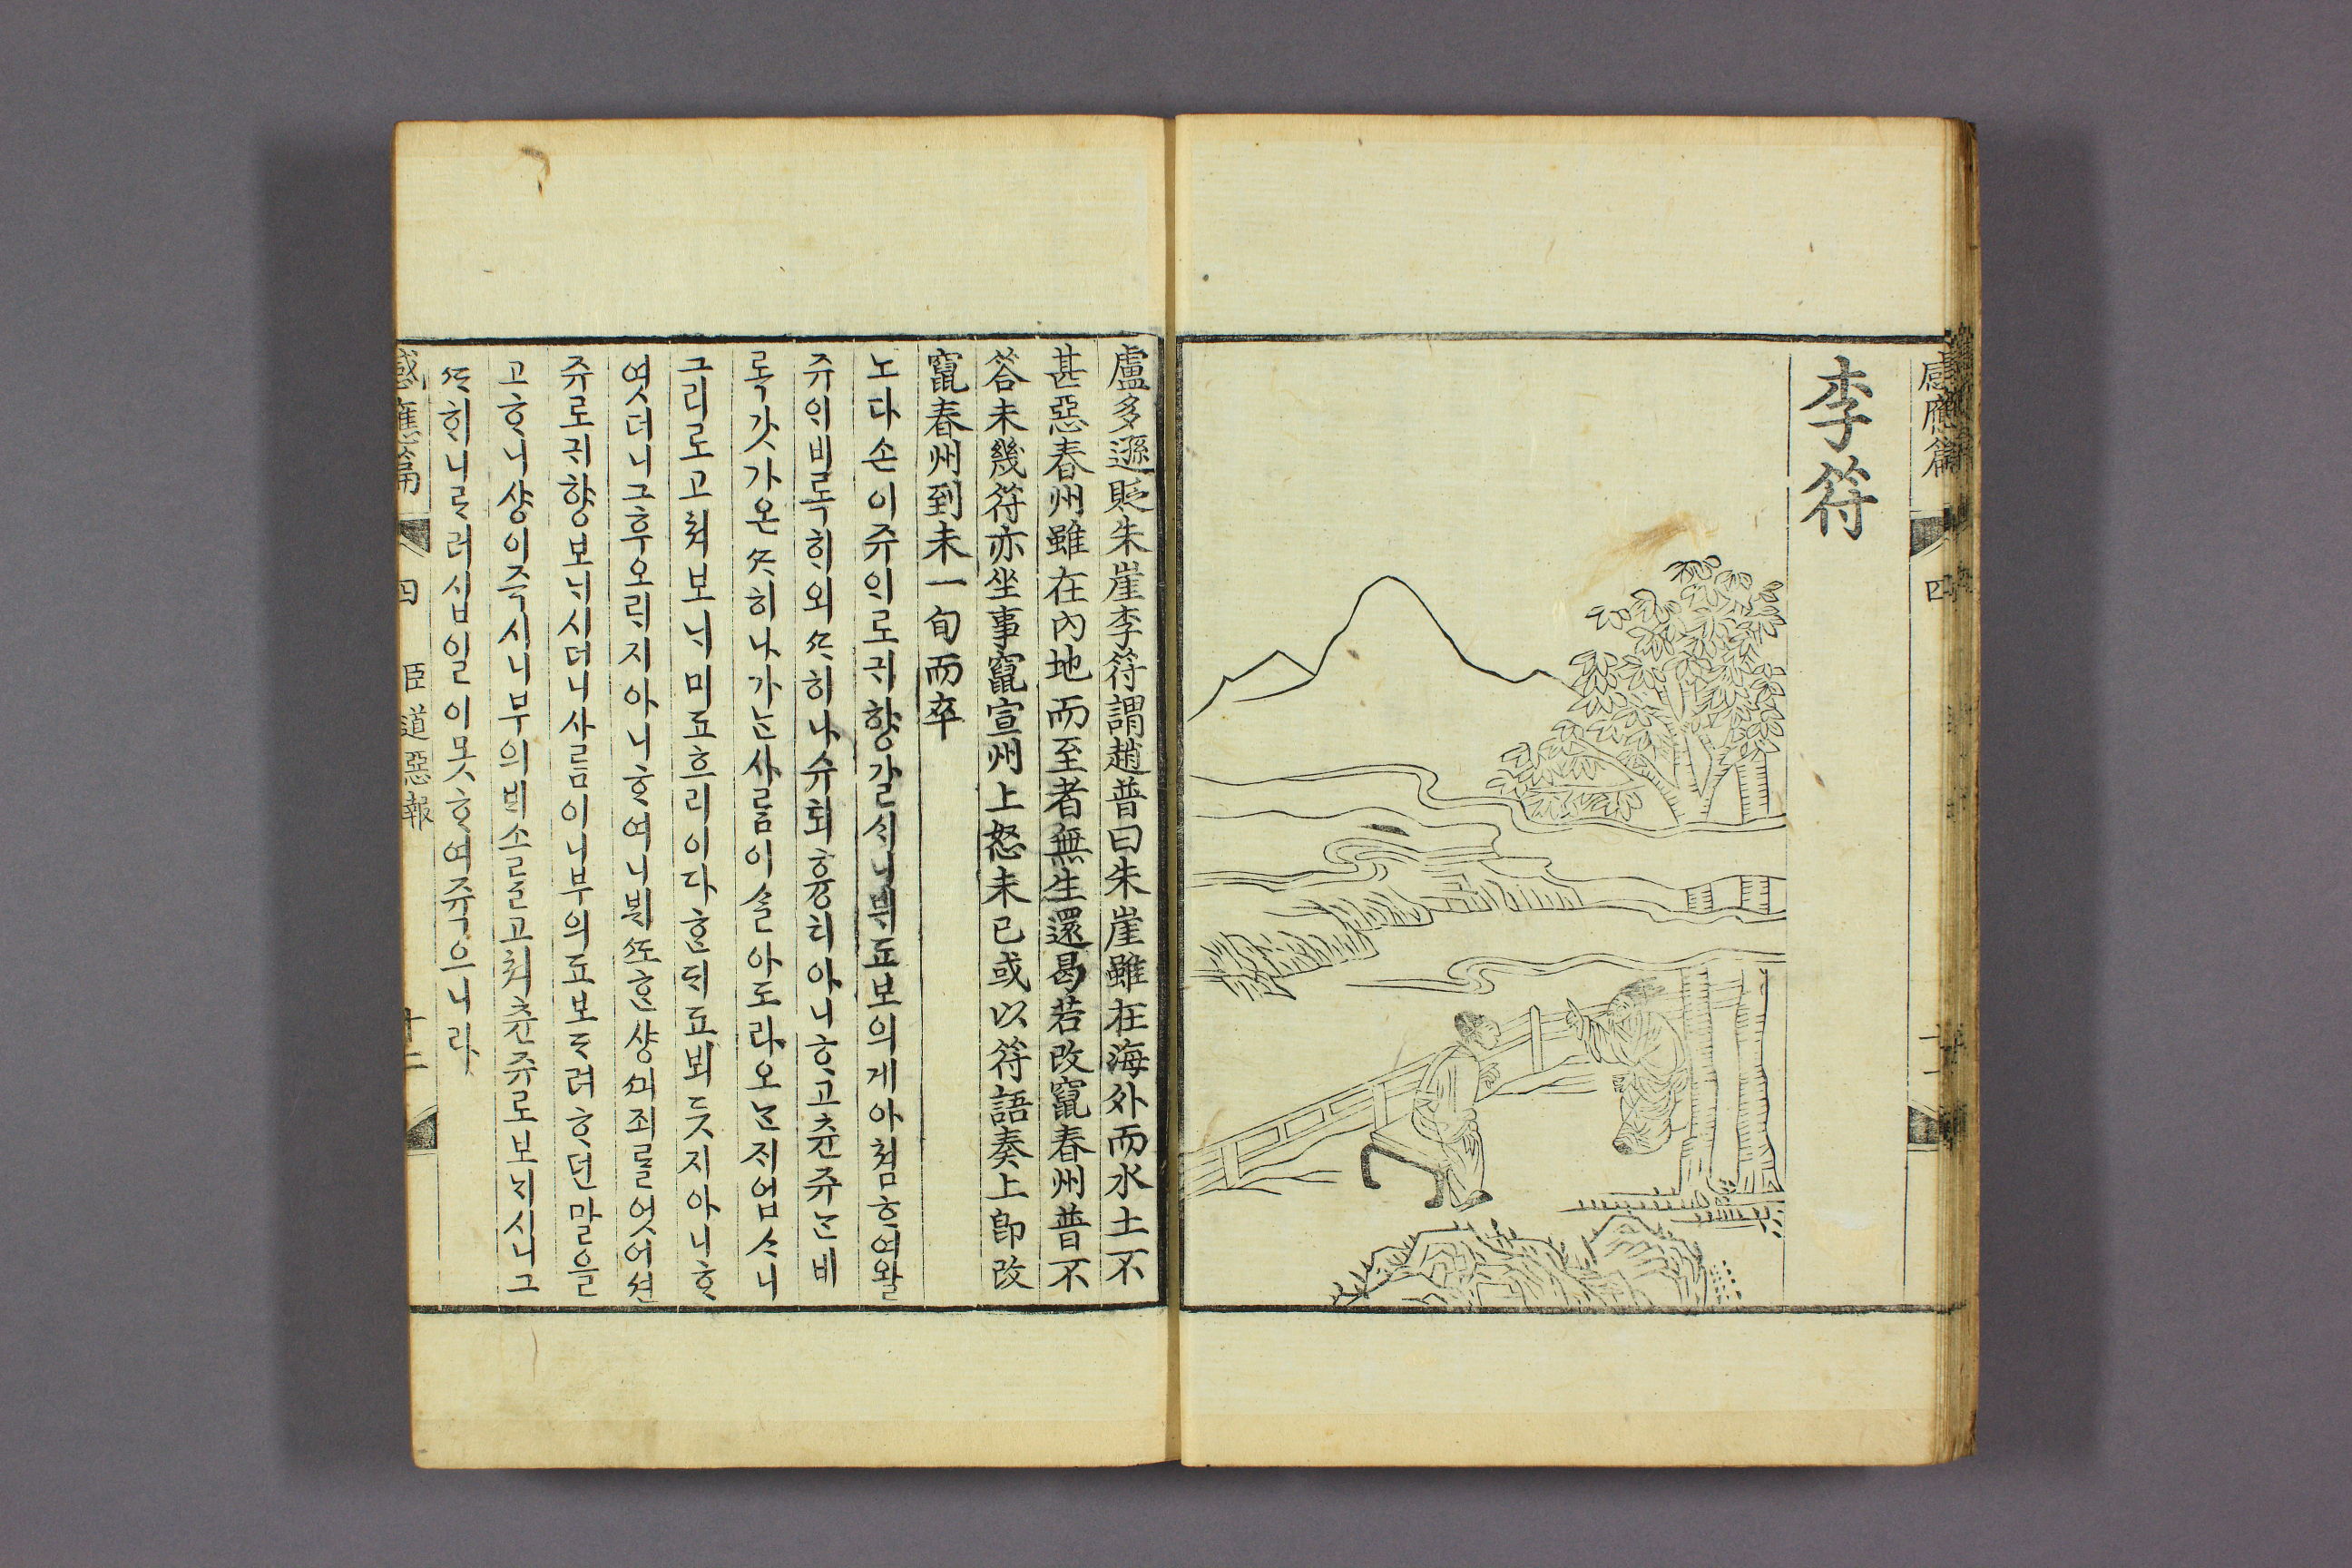 感應篇 四 十一
李符
盧多遜貶朱崖李符謂趙普曰朱崖雖在海外而水土不
甚惡春州雖在內地而至者無生還曷若改竄春州普不
答未幾符亦坐事竄宣州上怒未已或以符語奏上卽改
竄春州到未一旬而卒
노다손이쥬ᄋᆡ로귀향갈ᄉᆡ니뷔됴보의게아쳠ᄒᆞ여왈
쥬ᄋᆡ비록ᄒᆡ외ᄯᅡ히나슈퇴흉치아니ᄒᆞ고츈쥬ᄂᆞᆫ비
록갓가온ᄯᅡ히나가ᄂᆞᆫ사ᄅᆞᆷ이ᄉᆞᆯ아도라오ᄂᆞᆫᄌᆡ업ᄉᆞ니
그리로고쳐보ᄂᆡ미됴흐리이다ᄒᆞᆫᄃᆡ됴뵈듯지아니ᄒᆞ
엿더니그후오ᄅᆡ지아니ᄒᆞ여니뷔ᄯᅩᄒᆞᆫ샹ᄭᅴ죄ᄅᆞᆯ엇어션
쥬로귀향보ᄂᆡ시더니사ᄅᆞᆷ이니부의됴보ᄃᆞ려ᄒᆞ던말을
고ᄒᆞ니샹이즉시니부의ᄇᆡ소ᄅᆞᆯ고쳐츈쥬로보ᄂᆡ시니그
ᄯᅡᄒᆡ니ᄅᆞ러십일이못ᄒᆞ여쥭으니라
感應篇 四 臣道惡報 十二